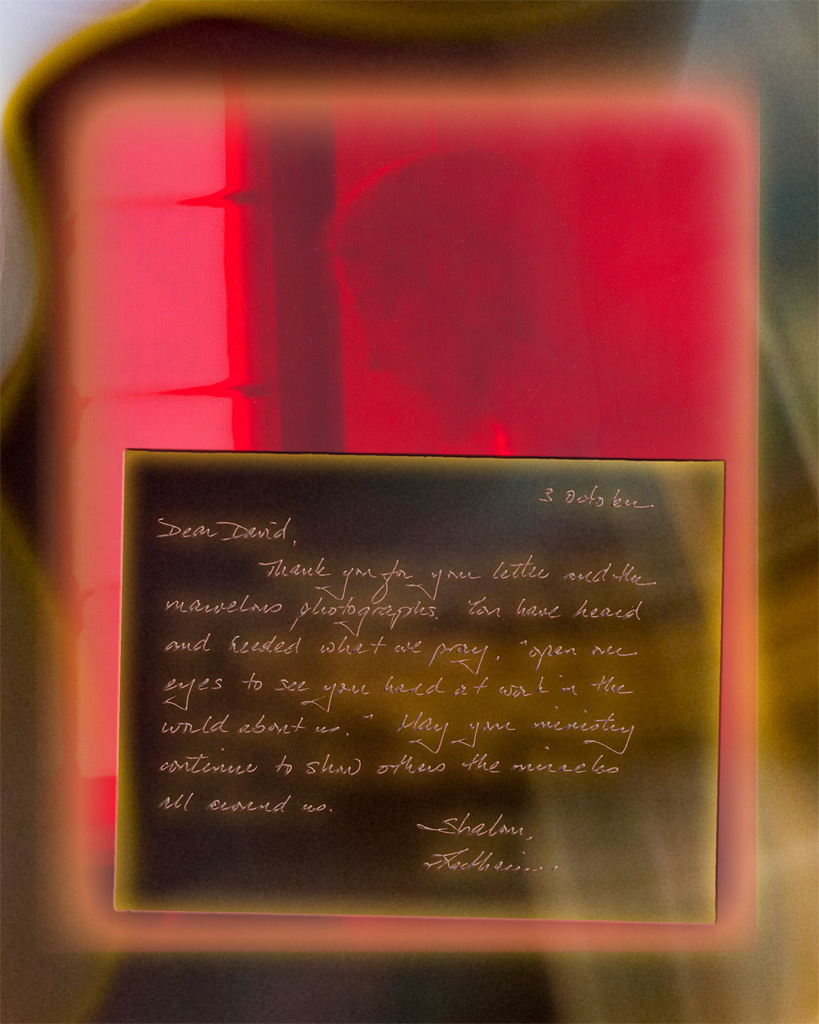 3 October
Dear David,
Thank you for your letter and the
marvelous photographs. You have heard
and heeded what we pray, "open our
eyes to see your hand at work in the
world about us." May your ministry
continue to show others the miracles
all around us.
Shalom,